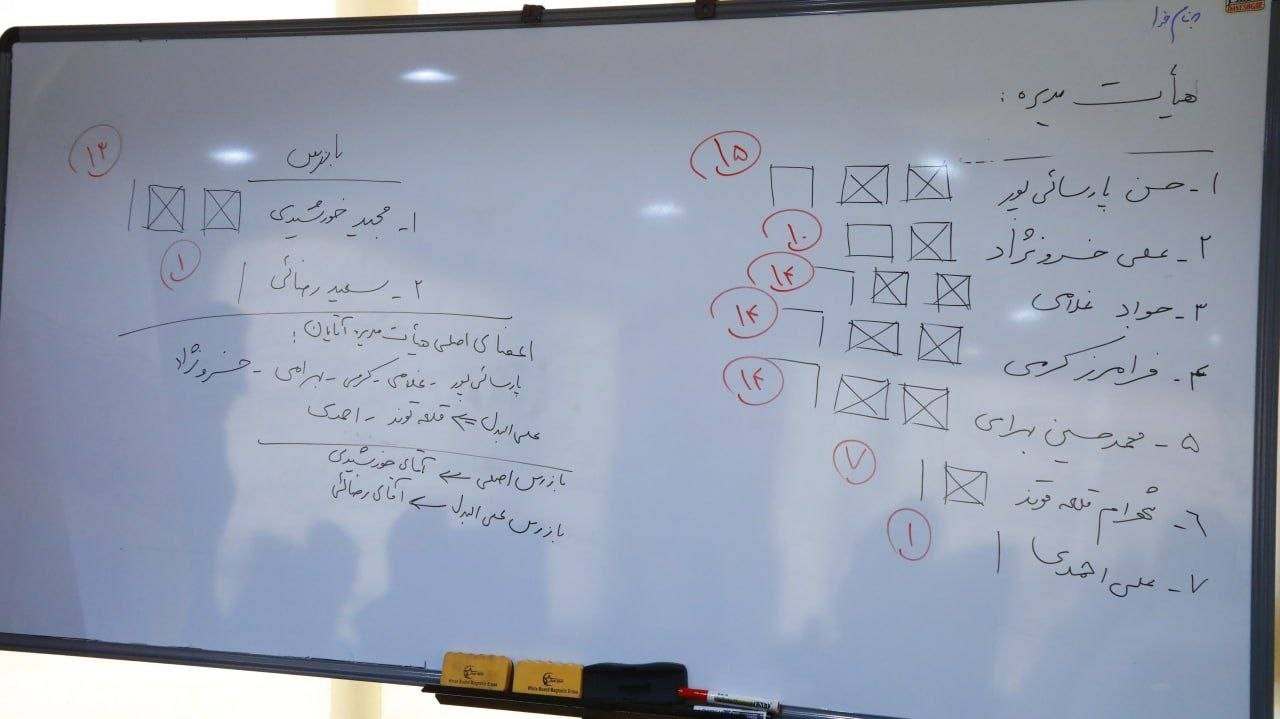 بنام خدا
هیأت مدیره :
۱- حسن پارسائی پور ۱۵
۲- خسرونژاد ۱۰
۳- جواد غلامی ۱۴
۴- فرامرز کرمی ۱۴
۵- محمدحسین بهرامی ۱۴
۶- شهرام قلعه قوند ۷
۷- علی احمدی ۱
بازرس
۱- مجید خورشیدی ۱۳
۲- سعید رضائی ۱
اعضای اصلی هیأت مدیره آقایان :
پارسائی پور - غلامی - کرمی - بهرامی - خسرونژاد
علی البدل ← قلعه قوند - احمدی
بازرس اصلی ← آقای خورشیدی
بازرس علی البدل ← آقای رضائی